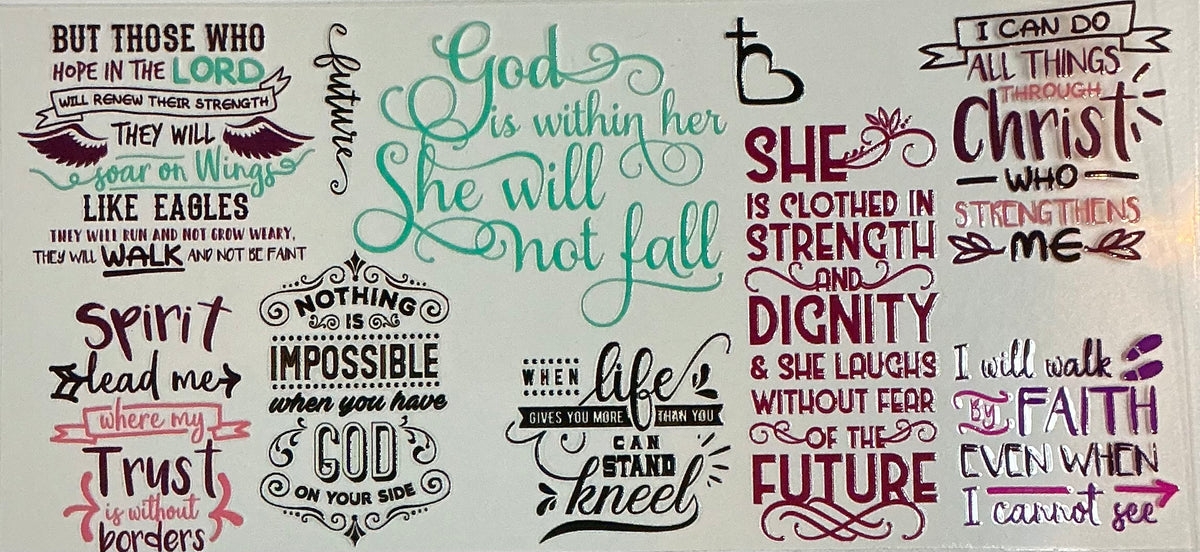 BUT THOSE WHO
HOPE IN THE LORD
WILL RENEW THEIR STRENGTH
THEY WILL
soar on Wings
LIKE EAGLES
THEY WILL RUN AND NOT GROW WEARY,
THEY WILL WALK AND NOT BE FAINT
future
God
is within her
She will
not fall
SHE
IS CLOTHED IN
STRENGTH
AND
DIGNITY
& SHE LAUGHS
WITHOUT FEAR
OF THE
FUTURE
I CAN DO
ALL THINGS
THROUGH
Christ
WHO
STRENGTHENS
ME
Spirit
lead me
where my
Trust
is without
borders
NOTHING
IS
IMPOSSIBLE
when you have
GOD
ON YOUR SIDE
WHEN life
GIVES YOU MORE THAN YOU
CAN
STAND
kneel
I will walk
BY FAITH
EVEN WHEN
I cannot see